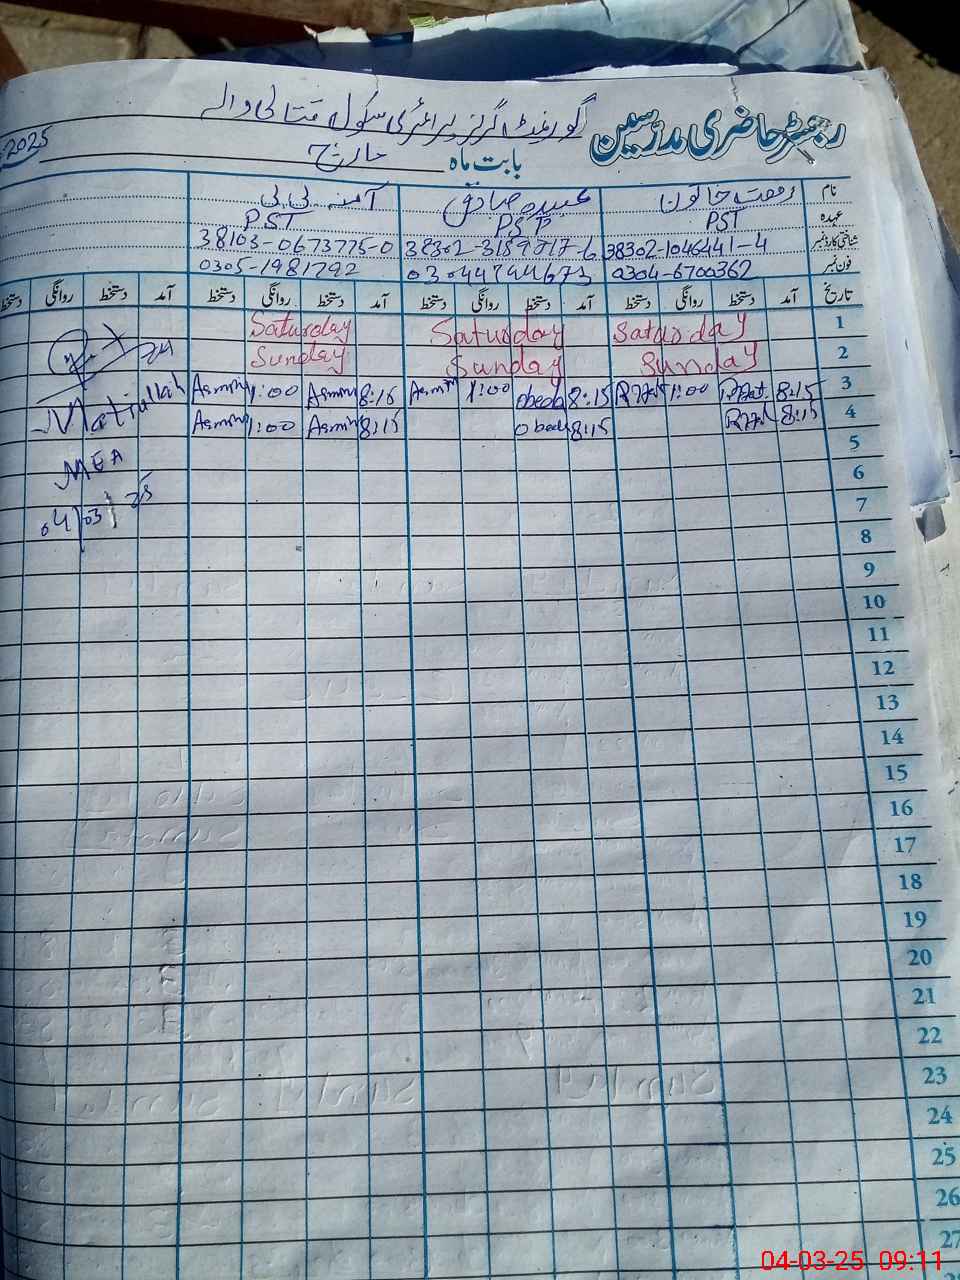 رجسٹر حاضری مدرسین گورنمنٹ گرلز پرائمری سکول
بابت ماہ مارچ 2025
نام رفعت خاتون عبیدہ صادق آمنہ بی بی
عہدہ PST PST PST
شناختی کارڈ نمبر 38302-1046441-4 38103-0673775-0
فون نمبر 0304-6700362 0305-1981792
تاریخ آمد دستخط روانگی دستخط آمد دستخط روانگی دستخط آمد دستخط روانگی دستخط آمد دستخط روانگی دستخط
1 Saturday Saturday Saturday
2 Sunday Sunday Sunday
3 8:15 1:00 8:15 Obeda 1:00 8:15 1:00
4 8:15 8:15 Obeda 8:15 1:00
Matiullah
MEA
04/03/25
5
6
7
8
9
10
11
12
13
14
15
16
17
18
19
20
21
22
23
24
25
26
27
04-03-25 09:11